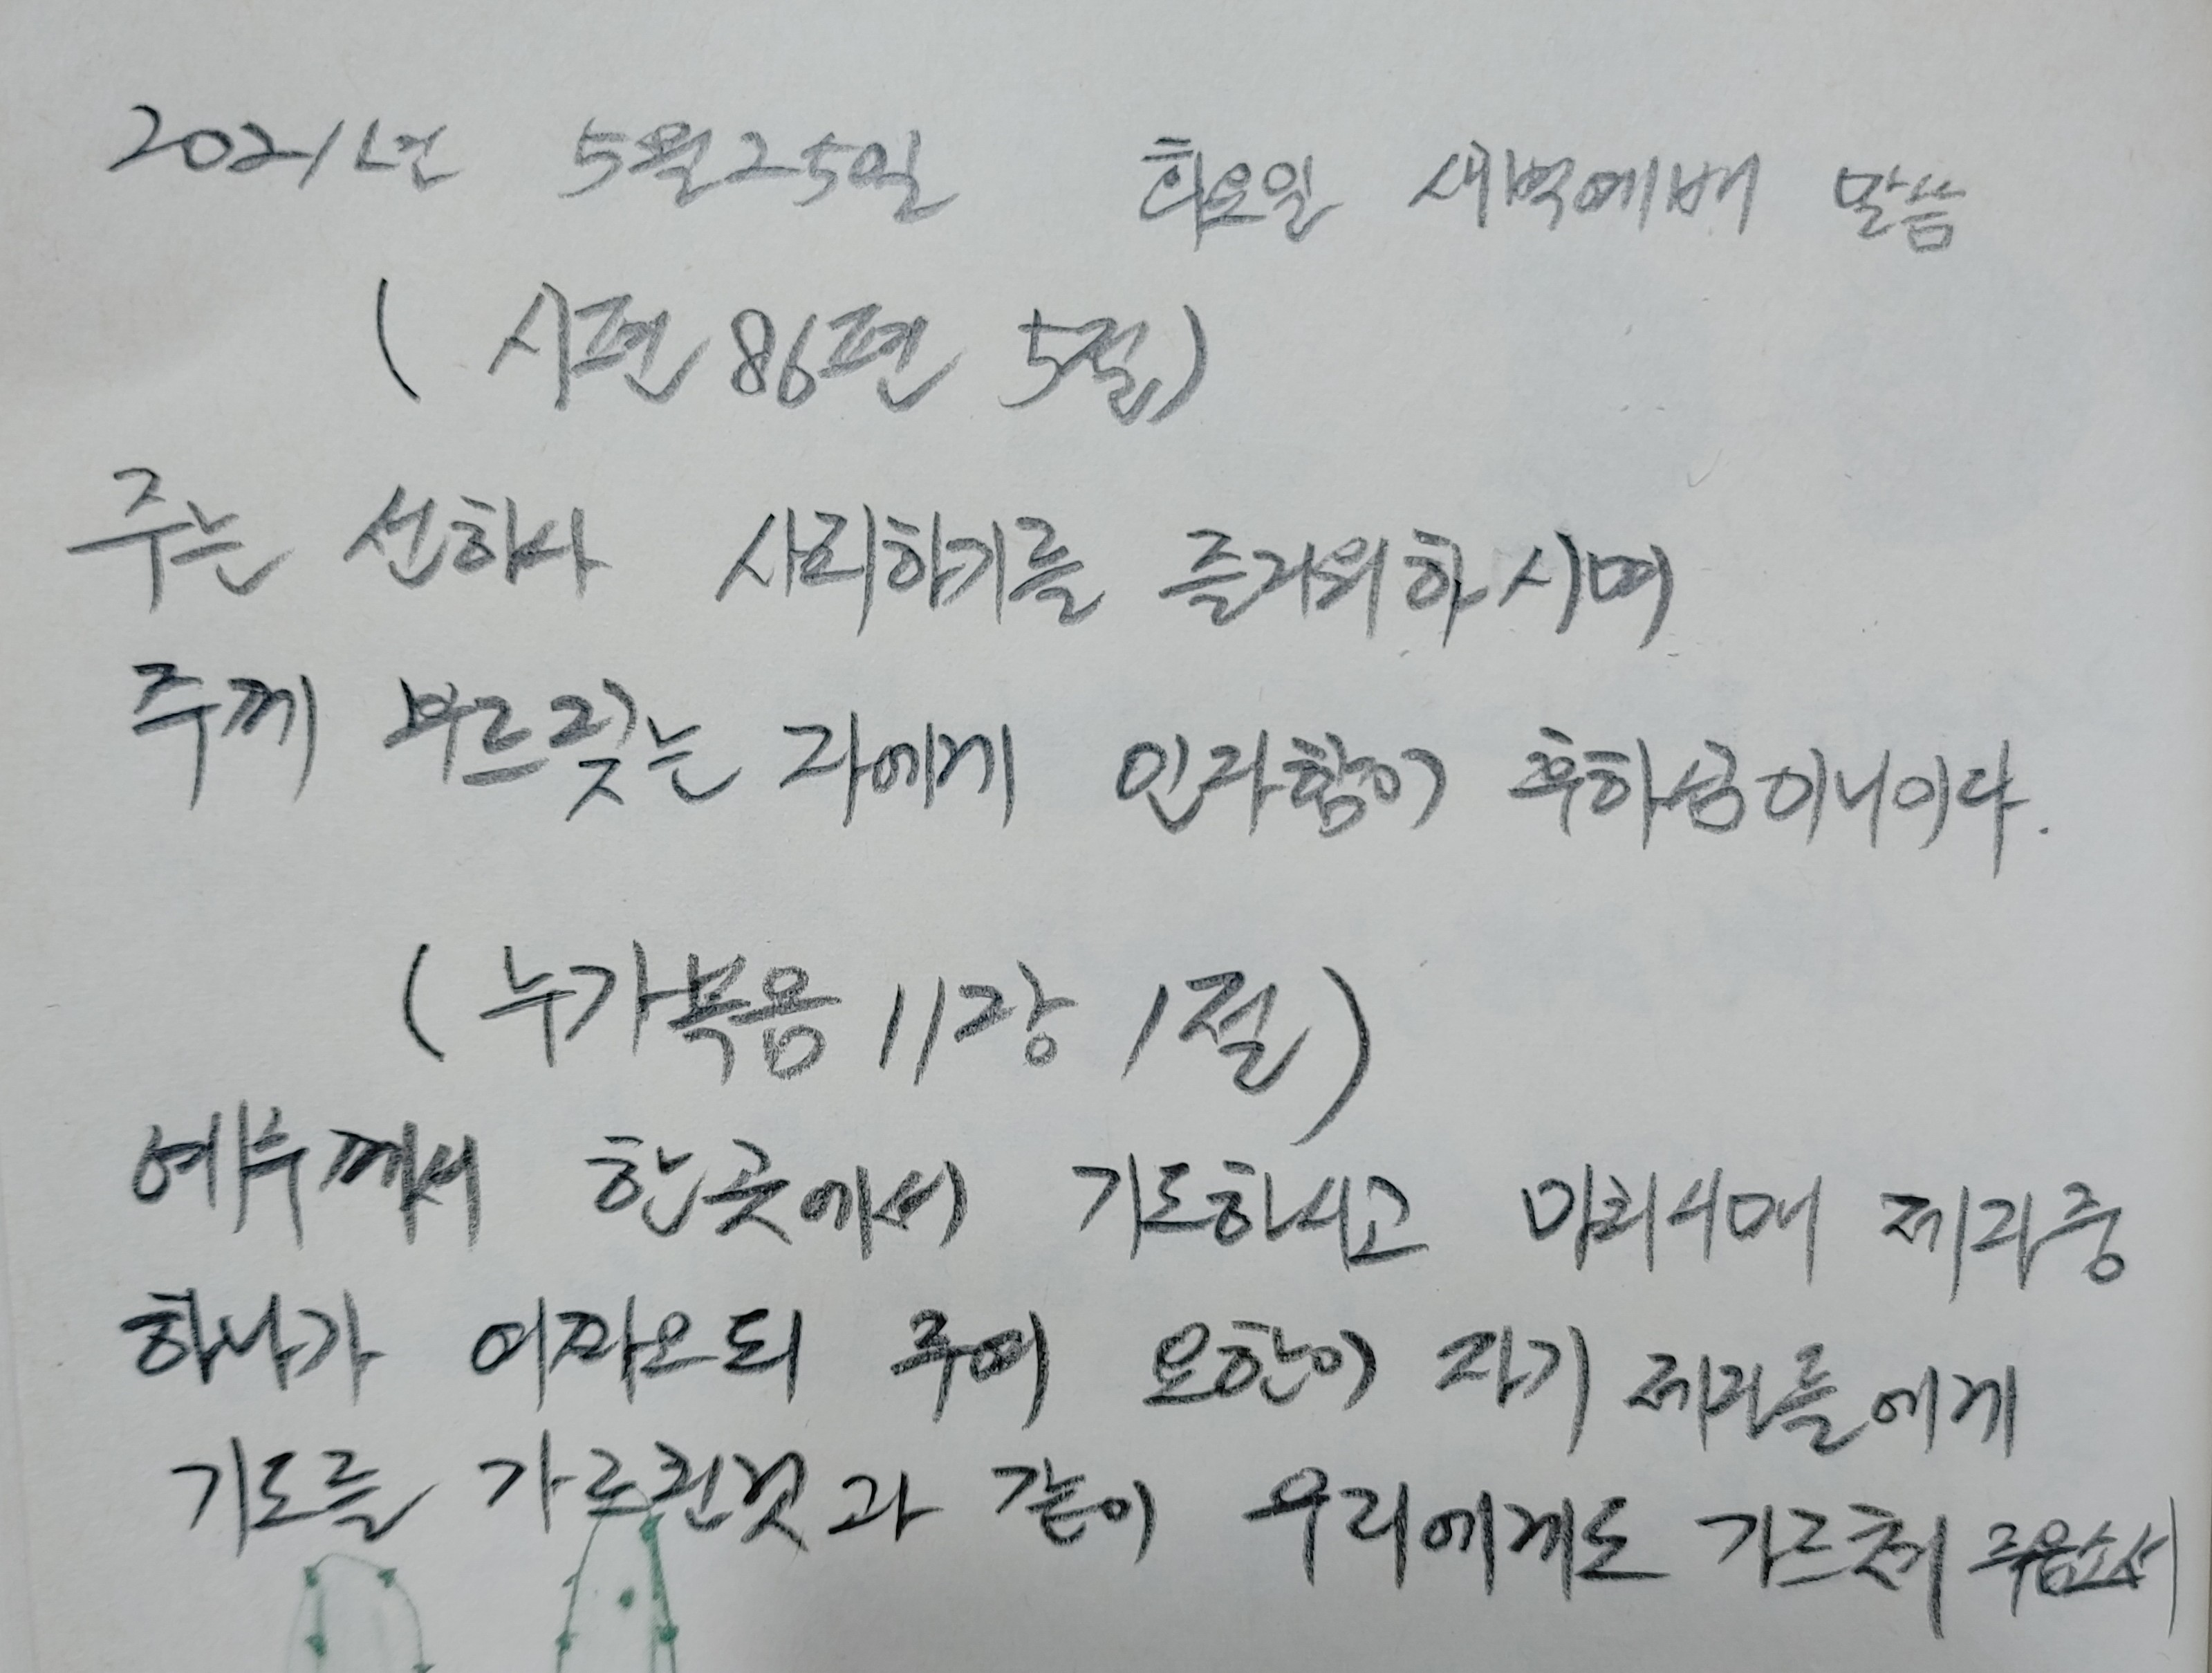 2021년 5월25일 화요일 새벽예배 말씀
( 시편 86편 5절)
주는 선하사 사죄하기를 즐거워하시며
주께 부르짖는 자에게 인자함이 후하심이니이다.
( 누가복음 11장 1절 )
예수께서 한곳에서 기도하시고 마치시매 제자중
하나가 여짜오되 주여 요한이 자기 제자들에게
기도를 가르친것과 같이 우리에게도 가르쳐 주옵소서